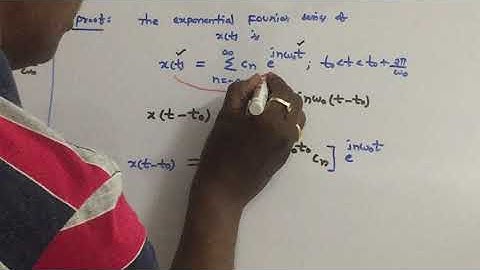 proof: The exponential Fourier series of
x(t) is
x(t) = ∑ Cn e^jnω0t ; t0<t<t0+2π/ω0
n=-
x(t-t0) jnω0(t-t0)
x(t-t0) = ω0t0 Cn] e^jnω0t